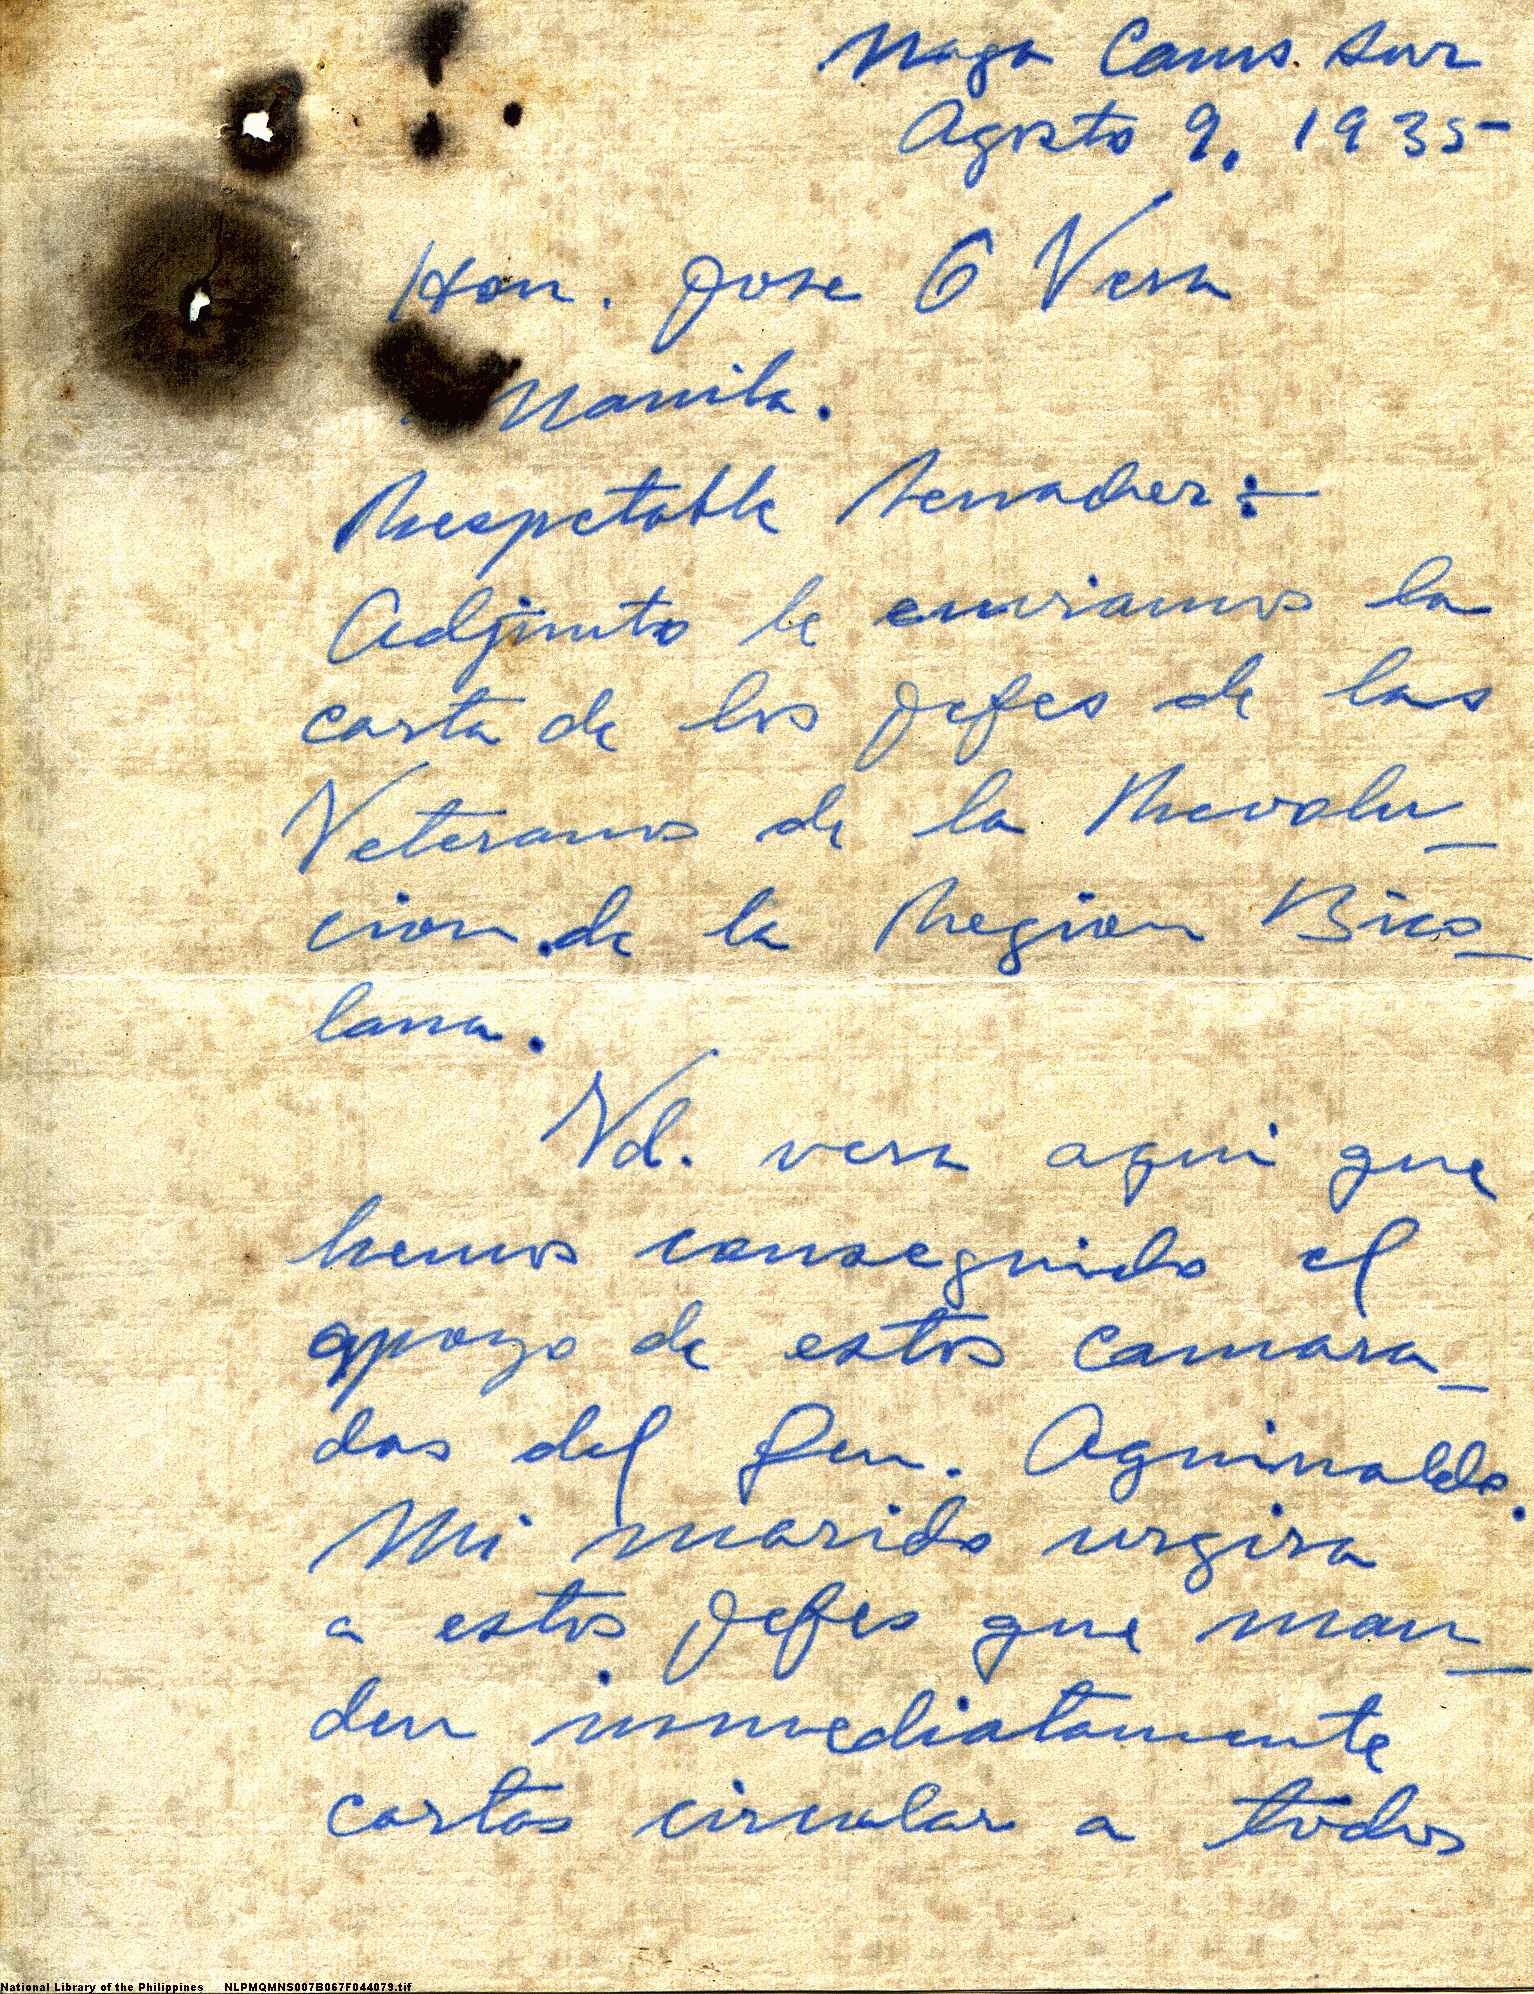 Naga Cams. Sur
Agosto 9, 1935
Hon. Jose G Vera
Manila.
Respetable Senador:-
Adjunto le enviamos la
carta de los Jefes de las
Veteranos de la Revolu-
cion de la Region Bico-
lana.
Vd. vera aqui que
hemos conseguido el
apoyo de estos camara-
das del Gen. Aguinaldo.
Mi marido urgira
a estos Jefes que man-
den inmediatamente
cartas circular a todos
National Library of the Philippines NLPMQMNS007B067F044079.tif